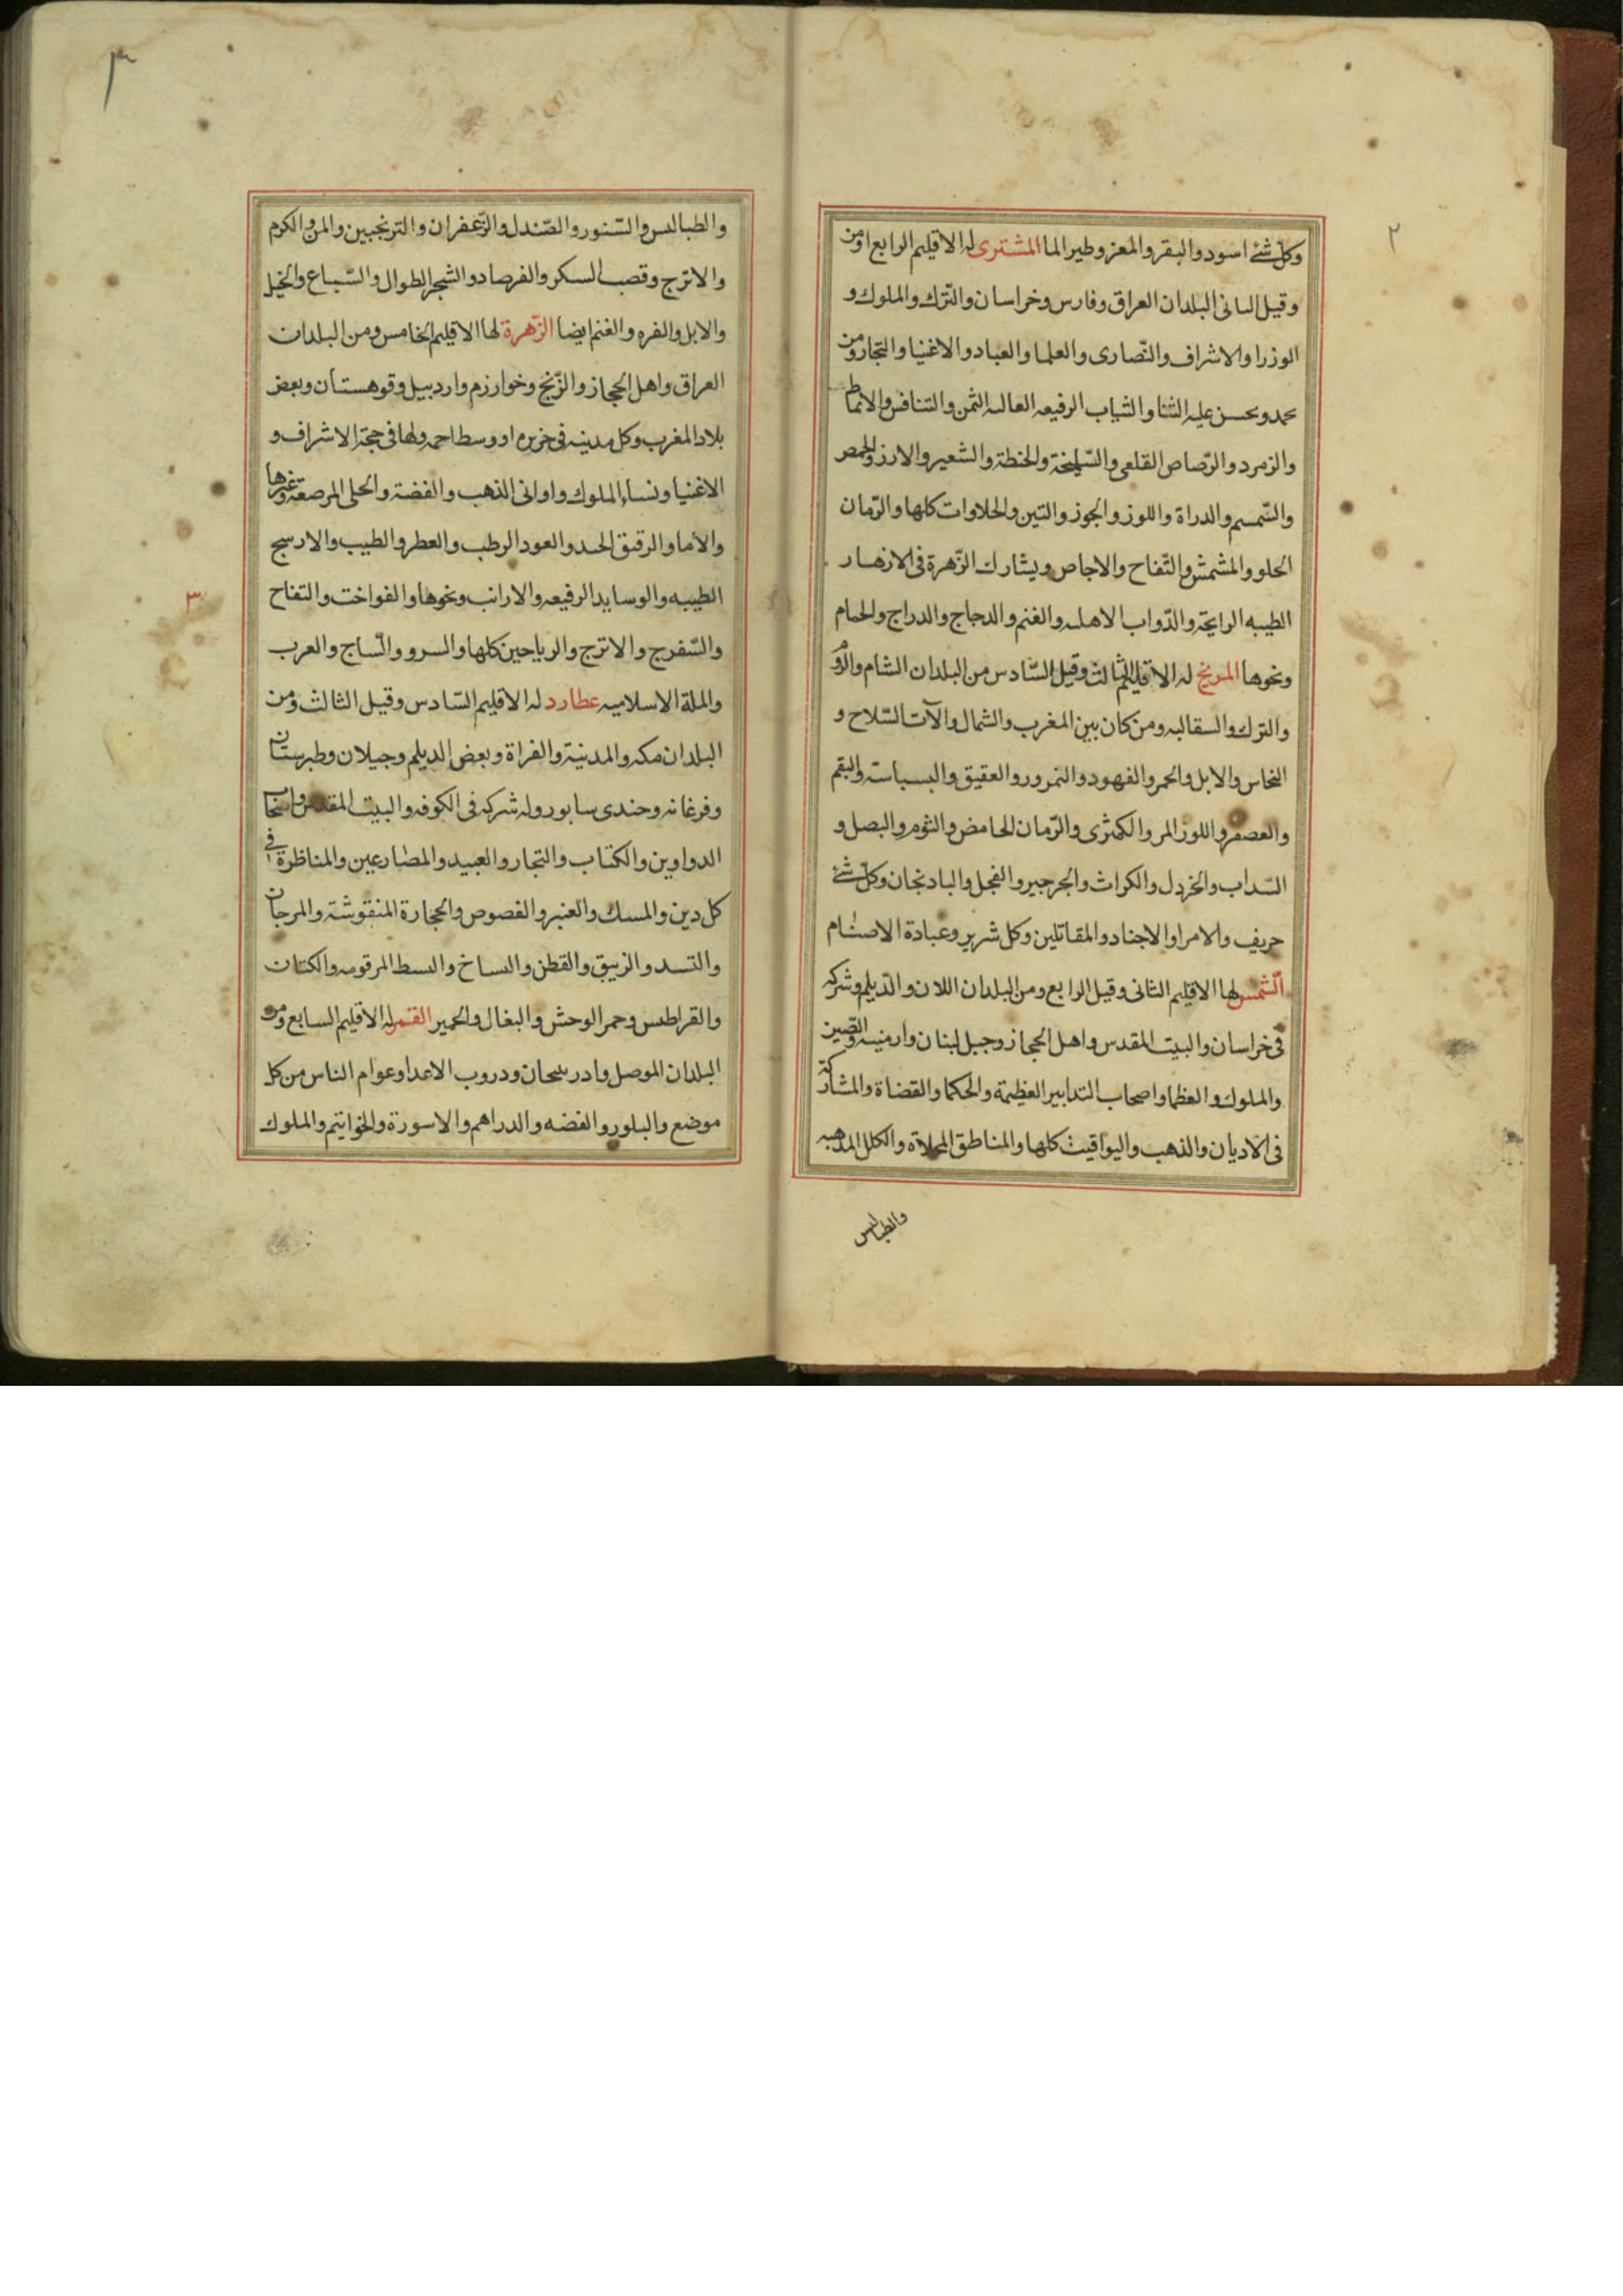 ٢
وكل شئ اسود والبقر والمعز وطير الما المشترى له الاقليم الرابع ومن
وقيل البلدان العراق وفارس وخراسان والترك والملوك و
الوزرا والاشراف والنصارى والعلما والعباد والاغنيا والتجار ومن
يحمد ويحسن عليه الثنا والثياب الرفيعه العاليه الثمن والتنافس والانماط
والزمرد والرصاص القلعى والسليخة والحنطة والشعير والارز والحمص
والسمسم والدراة واللوز والجوز والتين والحلاوات كلها والرمان
الحلو والمشمش والتفاح والاجاص ويشارك الزهرة فى الازهار
الطيبه الرايحة والدواب الاهليه والغنم والدجاج والدراج والحمام
ونحوها المريخ له الاقليم الثالث وقيل السادس من البلدان الشام والروم
والترك والسقالبه ومن كان بين المغرب والشمال والآت السلاح و
النحاس والابل والحمر والفهود والنمور والعقيق والبسباسة والبقم
والعصفر واللوز المر والكمثرى والرمان الحامض والثوم والبصل و
السداب والخردل والكراث والجرجير والفجل والبادنجان وكل شئ
حريف والامرا والاجناد والمقاتلين وكل شرير وعبادة الاصنام
الشمس لها الاقليم الثانى وقيل الرابع ومن البلدان اللان والديلم وشركه
فى خراسان والبيت المقدس واهل الحجاز وجبل لبنان وارمنيه والصين
والملوك والعظما واصحاب التدابير العظيمة والحكما والقضاة والمشاركة
فى الاديان والذهب واليواقيت كلها والمناطق المحلاة والكلل المذهبه
والطيالس
٣
والطيالس والسنور والصندل والزعفران والترنجبين والمن والكرم
والاترج وقصب السكر والفرصاد والشجر الطوال والسباع والخيل
والابل والفره والغنم ايضا الزهرة لها الاقليم الخامس ومن البلدان
العراق واهل الحجاز والزنج وخوارزم واردبيل وقوهستان وبعض
بلاد المغرب وكل مدينه فى جزيره او وسط اجمه ولها فى حجة الاشراف و
الاغنيا ونساء الملوك واوانى الذهب والفضة والحلى المرصعة وغيرها
والاما والرقيق والعود الرطب والعطر والطيب
الطيبه والوسايد الرفيعه والارانب ونحوها والفواخت والتفاح
والسفرج والاترج والرياحين كلها والسرو والساج والعرب
والملة الاسلاميه عطارد له الاقليم السادس وقيل الثالث ومن
البلدان مكه والمدنية والفراة وبعض الديلم وجيلان وطبرستان
وفرغانه وجندى سابور وله شركه فى الكوفه والبيت المقدس واصحاب
الدواوين والكتاب والتجار والعبيد والمصارعين والمناظرة فى
كل دين والمسك والعنبر والفصوص والحجارة المنقوشة والمرجان
والزيبق والقطن والبسط المرقومه والكتان
والقراطيس وحمر الوحش والبغال والحمير القمر له الاقليم السابع ومن
البلدان الموصل وادربيجان ودروب الاعدا وعوام الناس من كل
موضع والبلور والفضه والدراهم والاسورة والخواتيم والملوك
٣